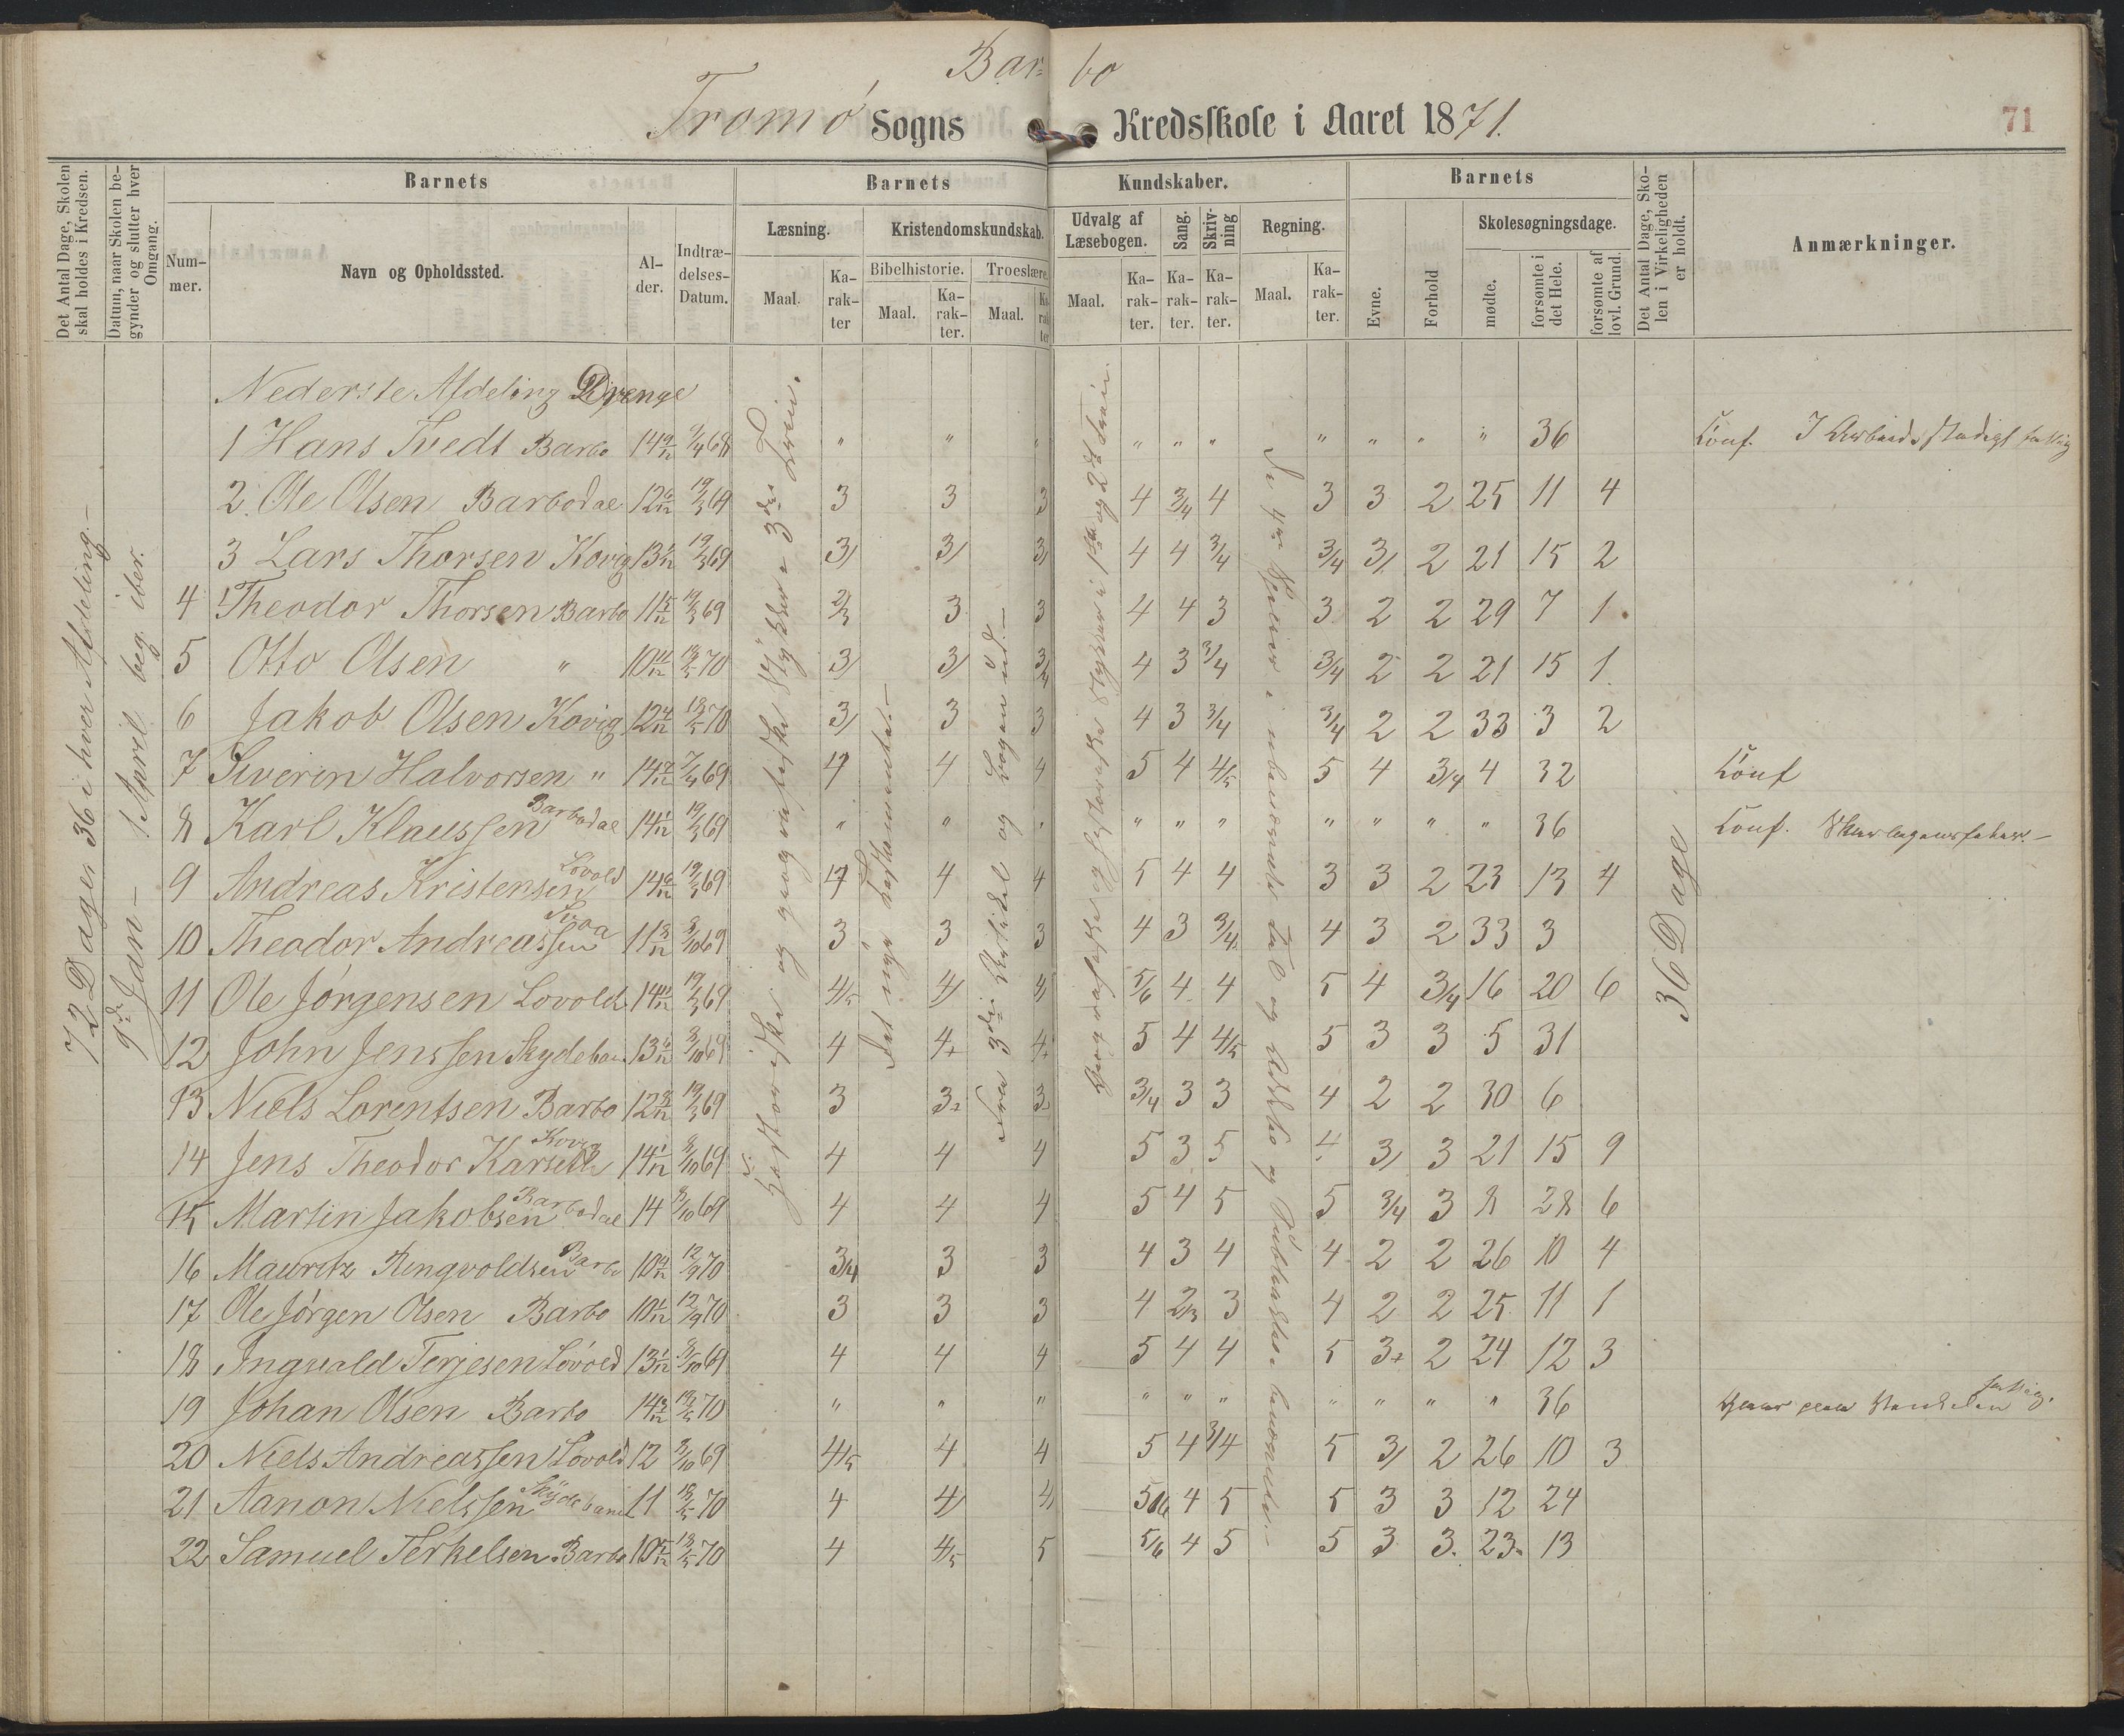 Bar= bo
Tromö Sogns Kredsskole i Aaret 1871.
71
Det Antal Dage, Skolen skal holdes i Kredsen.
Datum, naar Skolen begynder og slutter hver Omgang.
Barnets
Barnets
Kundskaber.
Barnets
Det Antal Dage, Skolen i Virkeligheden er holdt.
Anmærkninger.
Nummer.
Navn og Opholdssted.
Alder.
Indtrædelses-Datum.
Læsning.
Kristendomskundskab.
Udvalg af Læsebogen.
Sang.
Skrivning
Regning.
Evne.
Forhold
Skolesøgningsdage.
Maal.
Karakter
Bibelhistorie.
Troeslære.
Maal.
Karakter.
Maal.
Karakter
Maal.
Karakter.
Karakter.
Karakter.
Maal.
Karakter.
mødte.
forsømte i det Hele.
forsømte af lovl. Grund.
72 Dage 36 i hver Afdeling.-
9de Jan - 1 April beg. iber.
Det nye Testamente.-
Fra 3die Artikel og Bogen ud.-
36 Dage
Nederste Afdeling Drenge
1 Hans Tvedt Barbo 14 9/12 9/4 68 " " " " " " " " " " 36 Conf.
2 Ole Olsen Barbodal 12 6/12 19/3 69 3 3 3 4 3/4 4 3 3 2 25 11 4
3 Lars Thorsen Kovig 13 1/12 19/3 69 3/ 3/ 3/ 4 4 3/4 3/4 3/ 2 21 15 2
4 Theodor Thorsen Barbo 11 5/12 19/3 69 2/3 3 3 4 4 3 3 2 2 29 7 1
5 Otto Olsen " 10 11/12 70 3/ 3/ 3/4 4 3 3/4 3/4 2 2 21 15 1
6 Jakob Olsen Kovig 12 4/12 70 3/ 3 3 4 3 3/4 3/4 2 2 33 3 2
7 Siverin Halvorsen " 14 69 4 4 4 5 4 4/5 5 4 3/4 4 32 Conf
8 Karl Klaussen Barbodal 14 1/12 19/3 69 " " " " " " " " " " 36 Conf.
9 Andreas Kristensen Lovold 14 6/12 19/3 69 4 4 4 5 4 4 3 3 2 23 13 4
10 Theodor Andreassen 11 3/12 3/10 69 3 3 3 4 3 3/4 4 3 2 33 3
11 Ole Jörgensen Lovold 14 11/12 19/3 69 4/5 4/ 4/ 5/6 4 4 5 4 3/4 16 20 6
12 John Jenssen Skydeban 13 3/10 69 4 4+ 4+ 5 4 4/5 5 3 3 5 31
13 Niels Lorentsen Barbo 12 8/12 19/3 69 3 3+ 3+ 3/4 3 3 4 2 2 30 6
14 Jens Theodor Kovig 14 1/12 3/10 69 4 4 4 5 3 5 4 3/ 3 21 15 9
15 Martin Jakobsen Barbodal 14 3/10 69 4 4 4 5 4 5 5 3/4 3 8 28 6
16 Mauritz Ringvoldsen Barbo 10 4/12 12/9 70 3/4 3 3 4 3 4 4 2 2 26 10 4
17 Ole Jörgen Olsen Barbo 10 1/12 12/9 70 3 3 3 4 2/3 3 4 2 2 25 11 1
18 Ingvald Terjesen Lövold 13 1/12 3/10 69 4 4 4 5 4 4 5 3+ 2 24 12 3
19 Johan Olsen Barbo 14 70 " " " " " " " " " " 36
20 Niels Andreassen Lovold 12 3/10 69 4/5 4 4 5 4 3/4 5 3/ 2 26 10 3
21 Aanon Nielssen Skydebanen 11 70 4 4/ 4/ 5/6 4 5 5 3 3 12 24
22 Samuel Terkelsen Barbo 10 5/12 70 4 4/5 5 5/6 4 5 5 3 3 23 13